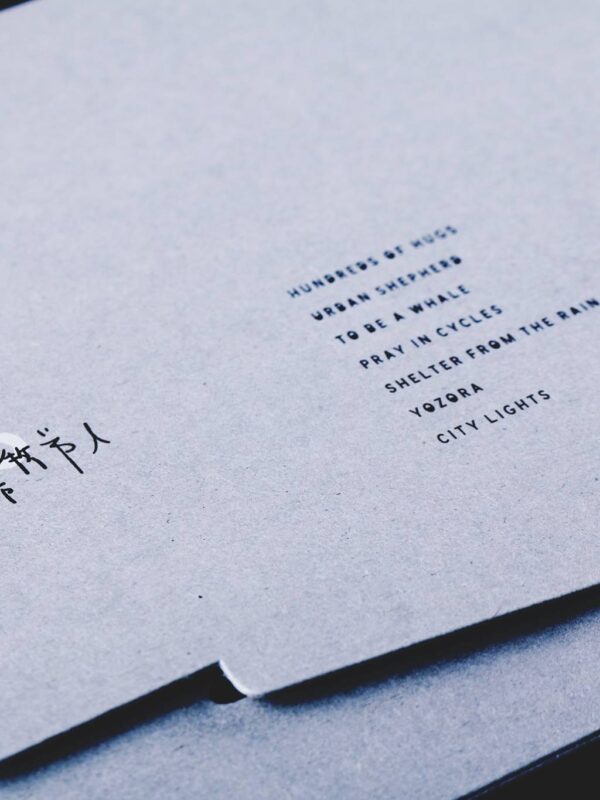 HUNDREDS OF HUGS
URBAN SHEPHERD
TO BE A WHALE
PRAY IN CYCLES
SHELTER FROM THE RAIN
YOZORA
CITY LIGHTS